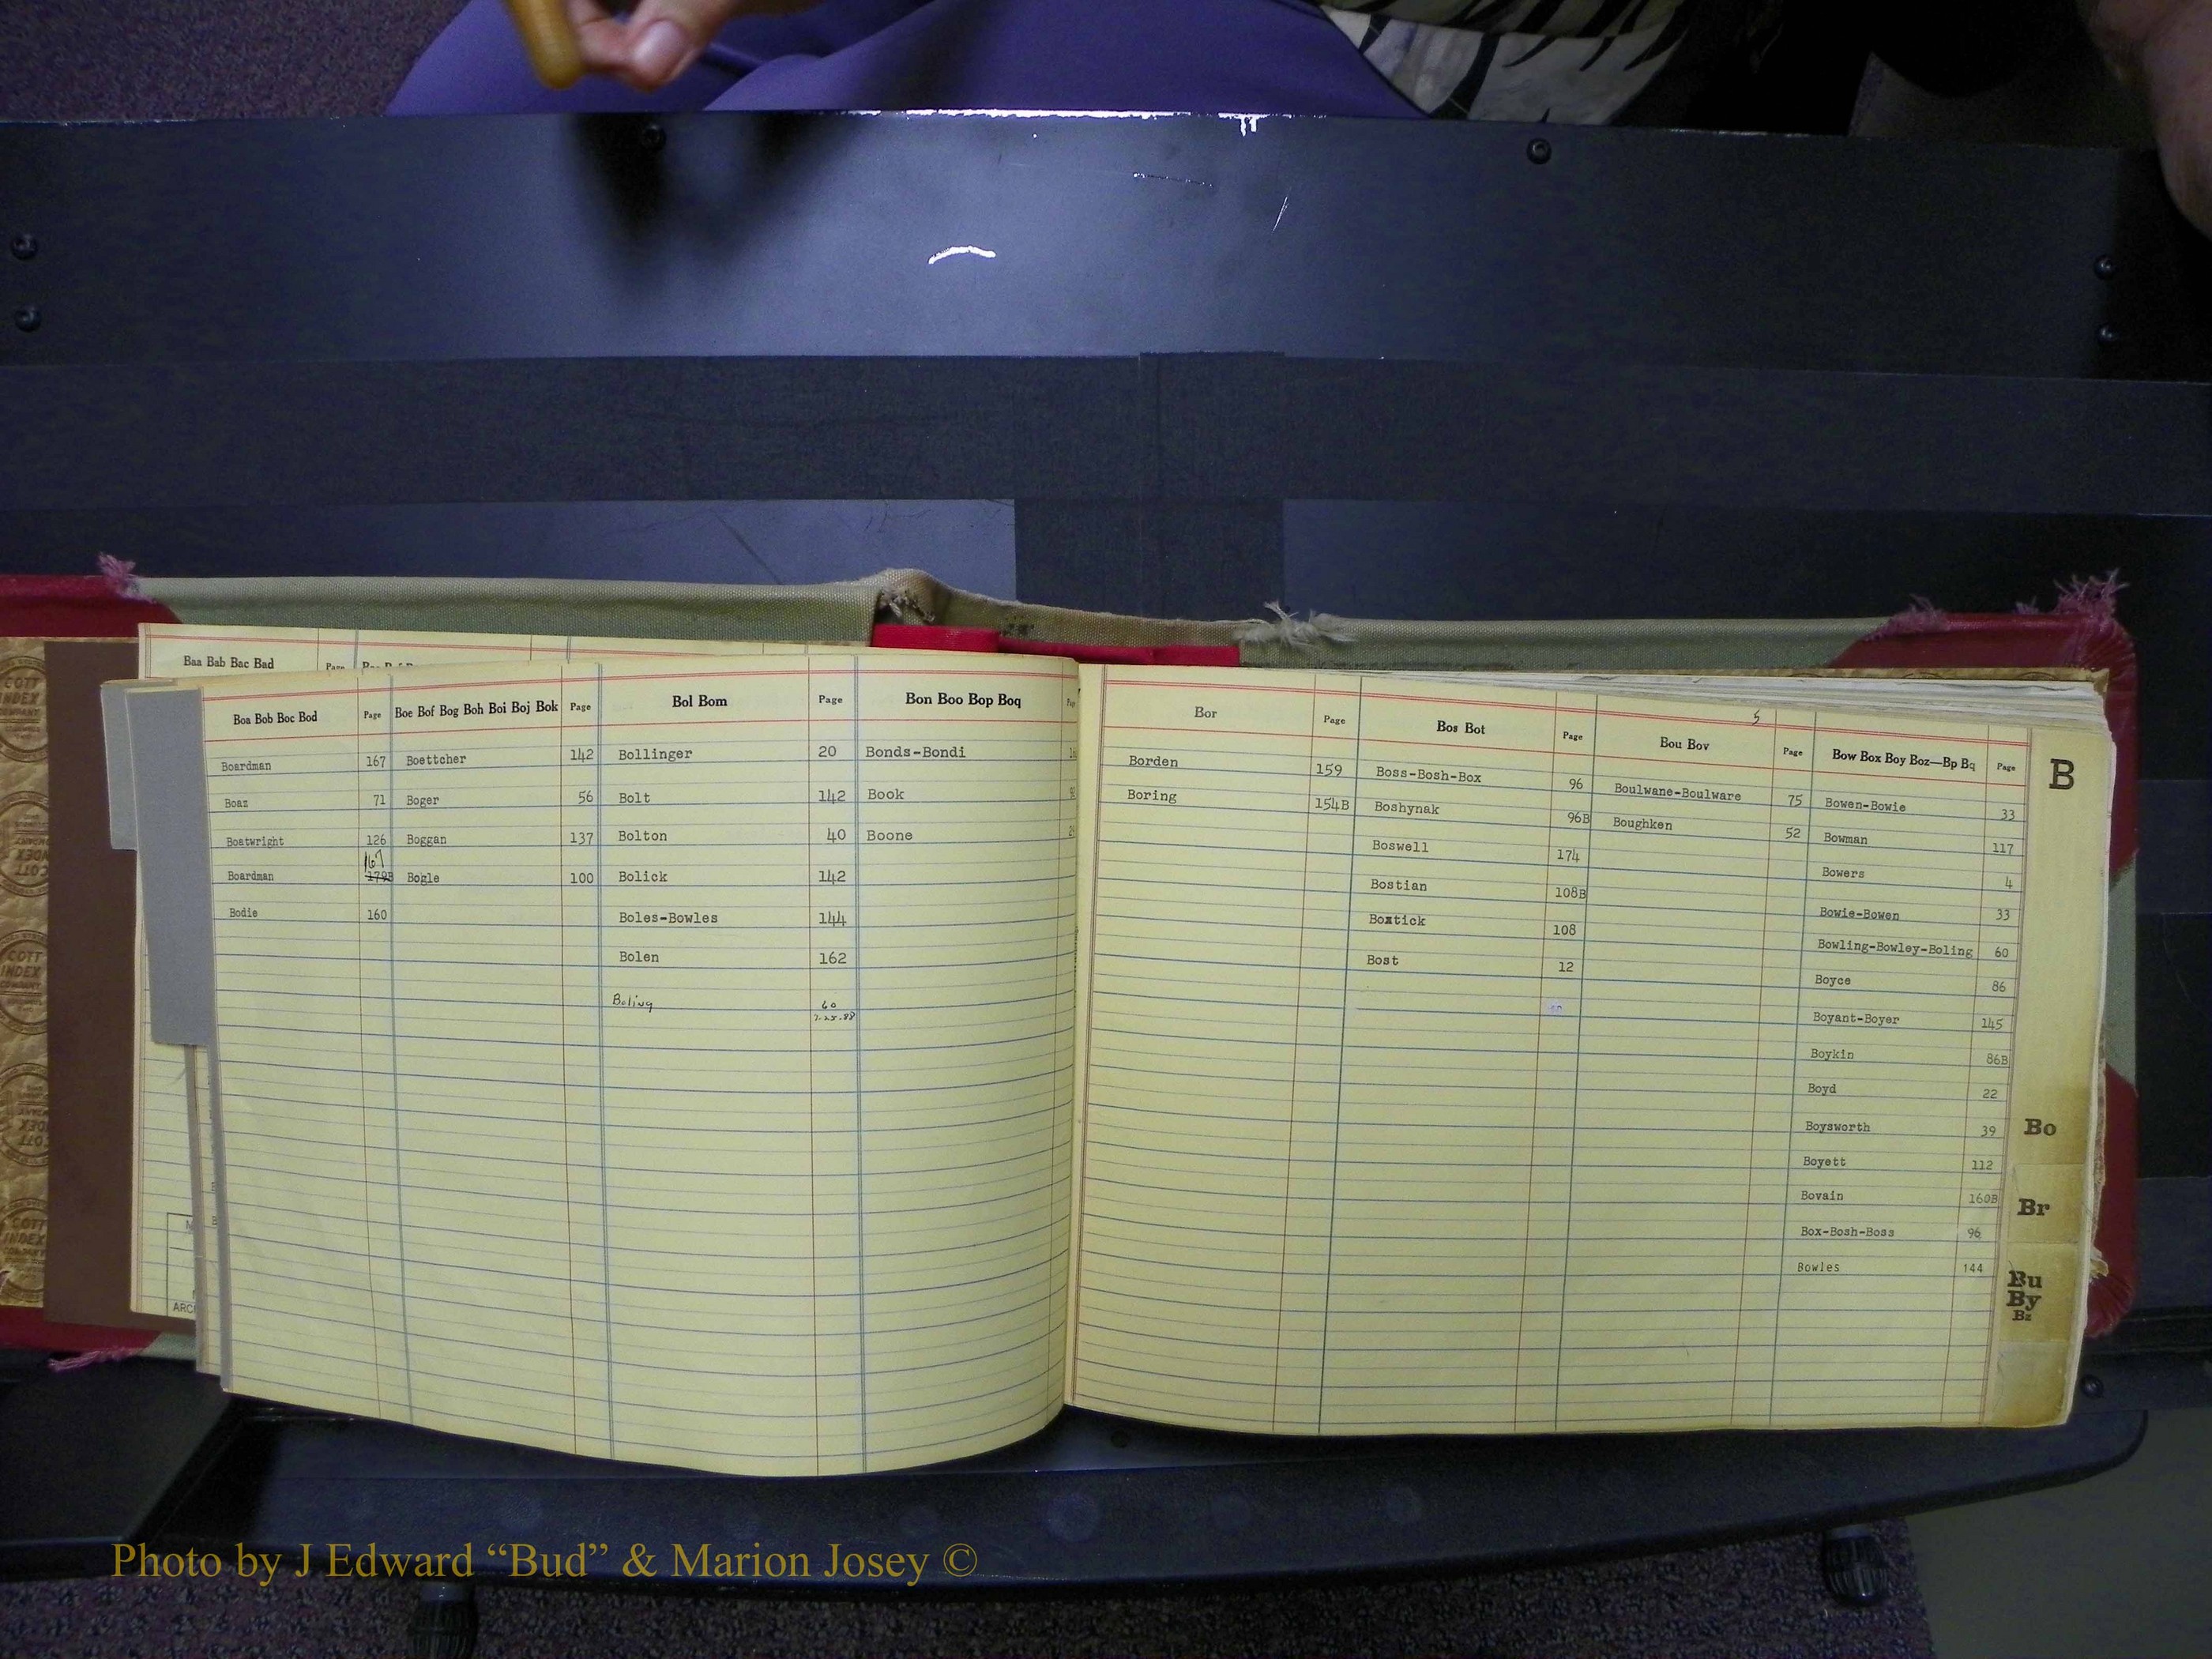 Baa Bab Bac Bad Page
Boa Bob Boc Bod Page
Boardman 167
Boaz 71
Boatwright 126
Boardman 167
Bodie 160
Boe Bof Bog Boh Boi Boj Bok Page
Boettcher 142
Boger 56
Boggan 137
Bogle 100
Bol Bom Page
Bollinger 20
Bolt 142
Bolton 40
Bolick 142
Boles-Bowles 144
Bolen 162
Boling 60
7-25-88
Bon Boo Bop Boq
Bonds-Bondi
Book
Boone
Bor Page
Borden 159
Boring 154B
Bos Bot Page
Boss-Bosh-Box 96
Boshynak 96B
Boswell 174
Bostian 108B
Bostick 108
Bost 12
5
Bou Bov Page
Boulwane-Boulware 75
Boughken 52
Bow Box Boy Boz—Bp Bq Page
Bowen-Bowie 33
Bowman 117
Bowers 4
Bowie-Bowen 33
Bowling-Bowley-Boling 60
Boyce 86
Boyant-Boyer 145
Boykin 86B
Boyd 22
Boysworth 39
Boyett 112
Bovain 160B
Box-Bosh-Boss 96
Bowles 144
B
Bo
Br
Bu
By
Bz
COTT
INDEX
COMPANY
Photo by J Edward “Bud” & Marion Josey ©